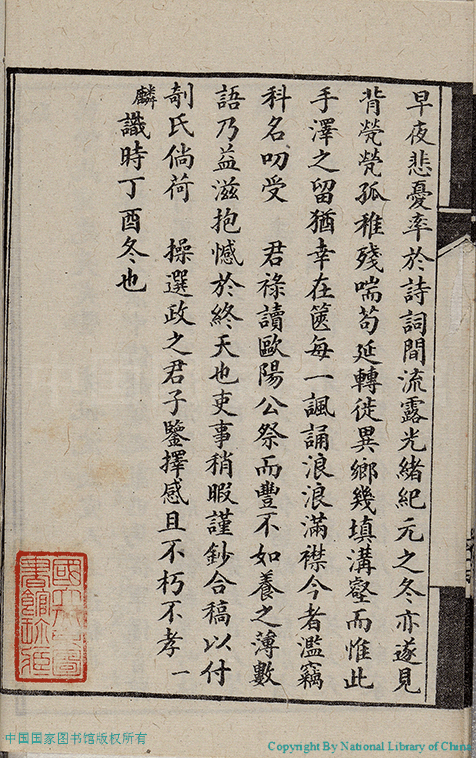 早夜悲憂率於詩詞間流露光緒紀元之冬亦遂見
背煢煢孤稚殘喘苟延轉徙異鄉幾填溝壑而惟此
手澤之留猶幸在篋每一諷誦浪浪滿襟今者濫竊
科名叨受 君祿讀歐陽公祭而豐不如養之薄數
語乃益滋抱憾於終天也吏事稍暇謹鈔合稿以付
剞氏倘荷 操選政之君子鑒擇感且不朽不孝一
麟識時丁酉冬也
國立北平圖書館珍藏
中国国家图书馆版权所有
Copyright By National Library of China